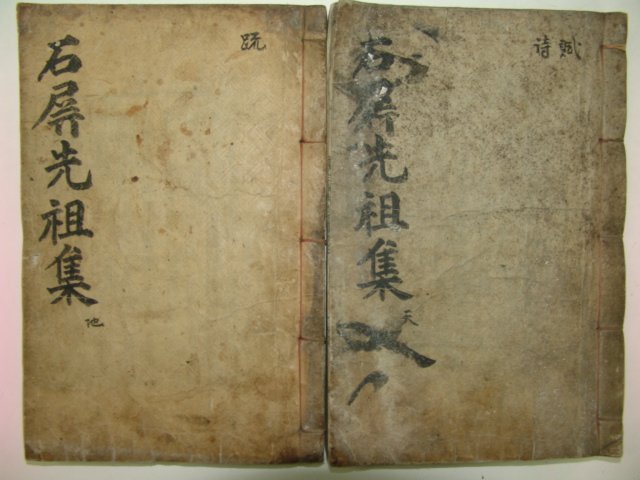 賦
詩
石屛先祖集
天
疏
石屛先祖集
地